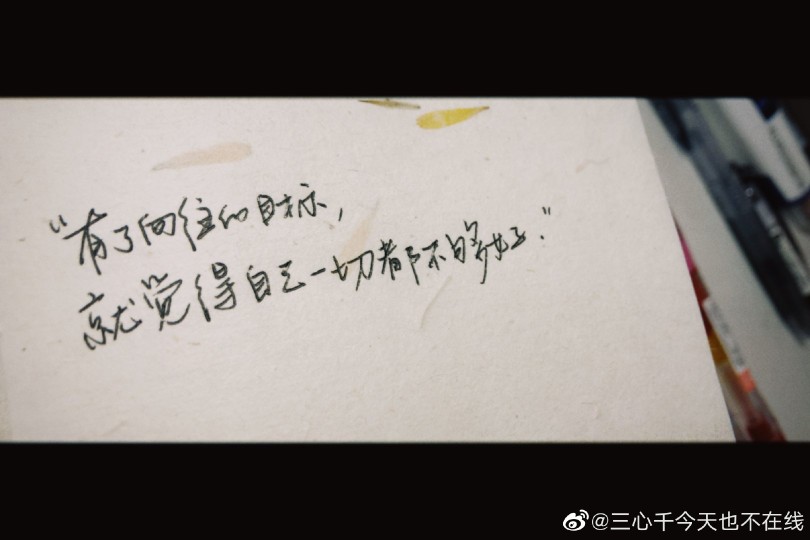 “有了向往的目标，
就觉得自己一切都不够好.”
@三心千今天也不在线